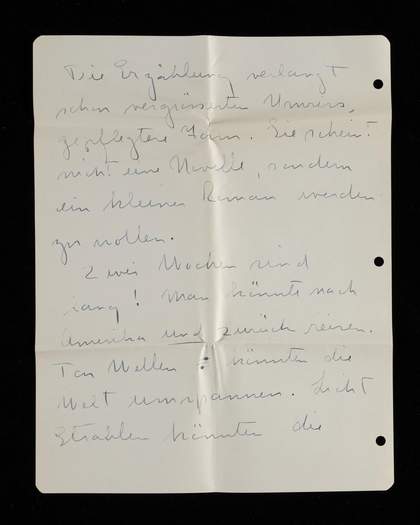 Die Erzählung verlangt
schon vergrösserten Umriss,
gepflegtere Form. Sie scheint
nicht eine Novelle, sondern
ein kleiner Roman werden
zu wollen.
Zwei Wochen sind
lang! Man könnte nach
Amerika und zurück reisen.
Ton Wellen könnten die
Welt umspannen. Licht
Strahlen könnten die